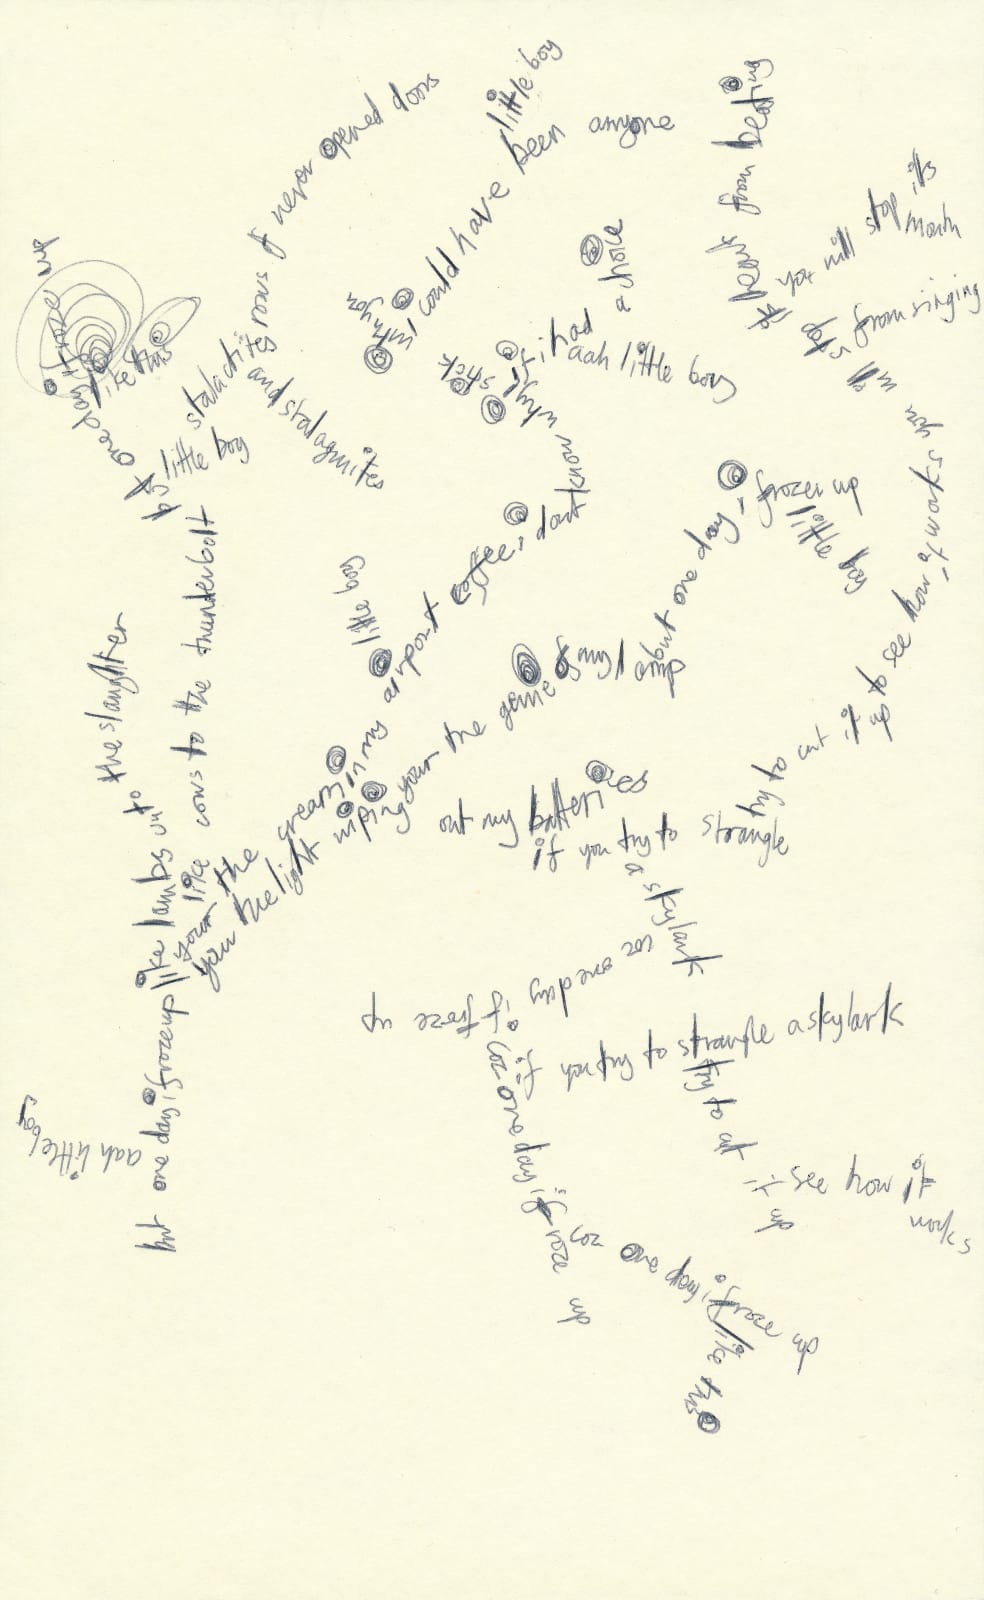 little boy
i could have been anyone
why you
rows of never opened doors
stalactites
and stalagmites
one day i froze up
like this
little boy
but one day i froze up like lambs un to the slaughter
your like cows to the thunderbolt
aah little boy
your the cream in my airport coffee i dont know why i stick
if i had a choice
aah little boy
little boy
your the light wiping your the genie of my lamp
but one day i frozen up
little boy
out my batteries
if you try to strangle a skylark
try to cut it up to see how it works
you will stop its heart from beating
you will stop its mouth from singing
coz one day i froze up
if you try to strangle a skylark
try to cut it up
see how it works
coz one day i froze up
coz one day i froze up
like this